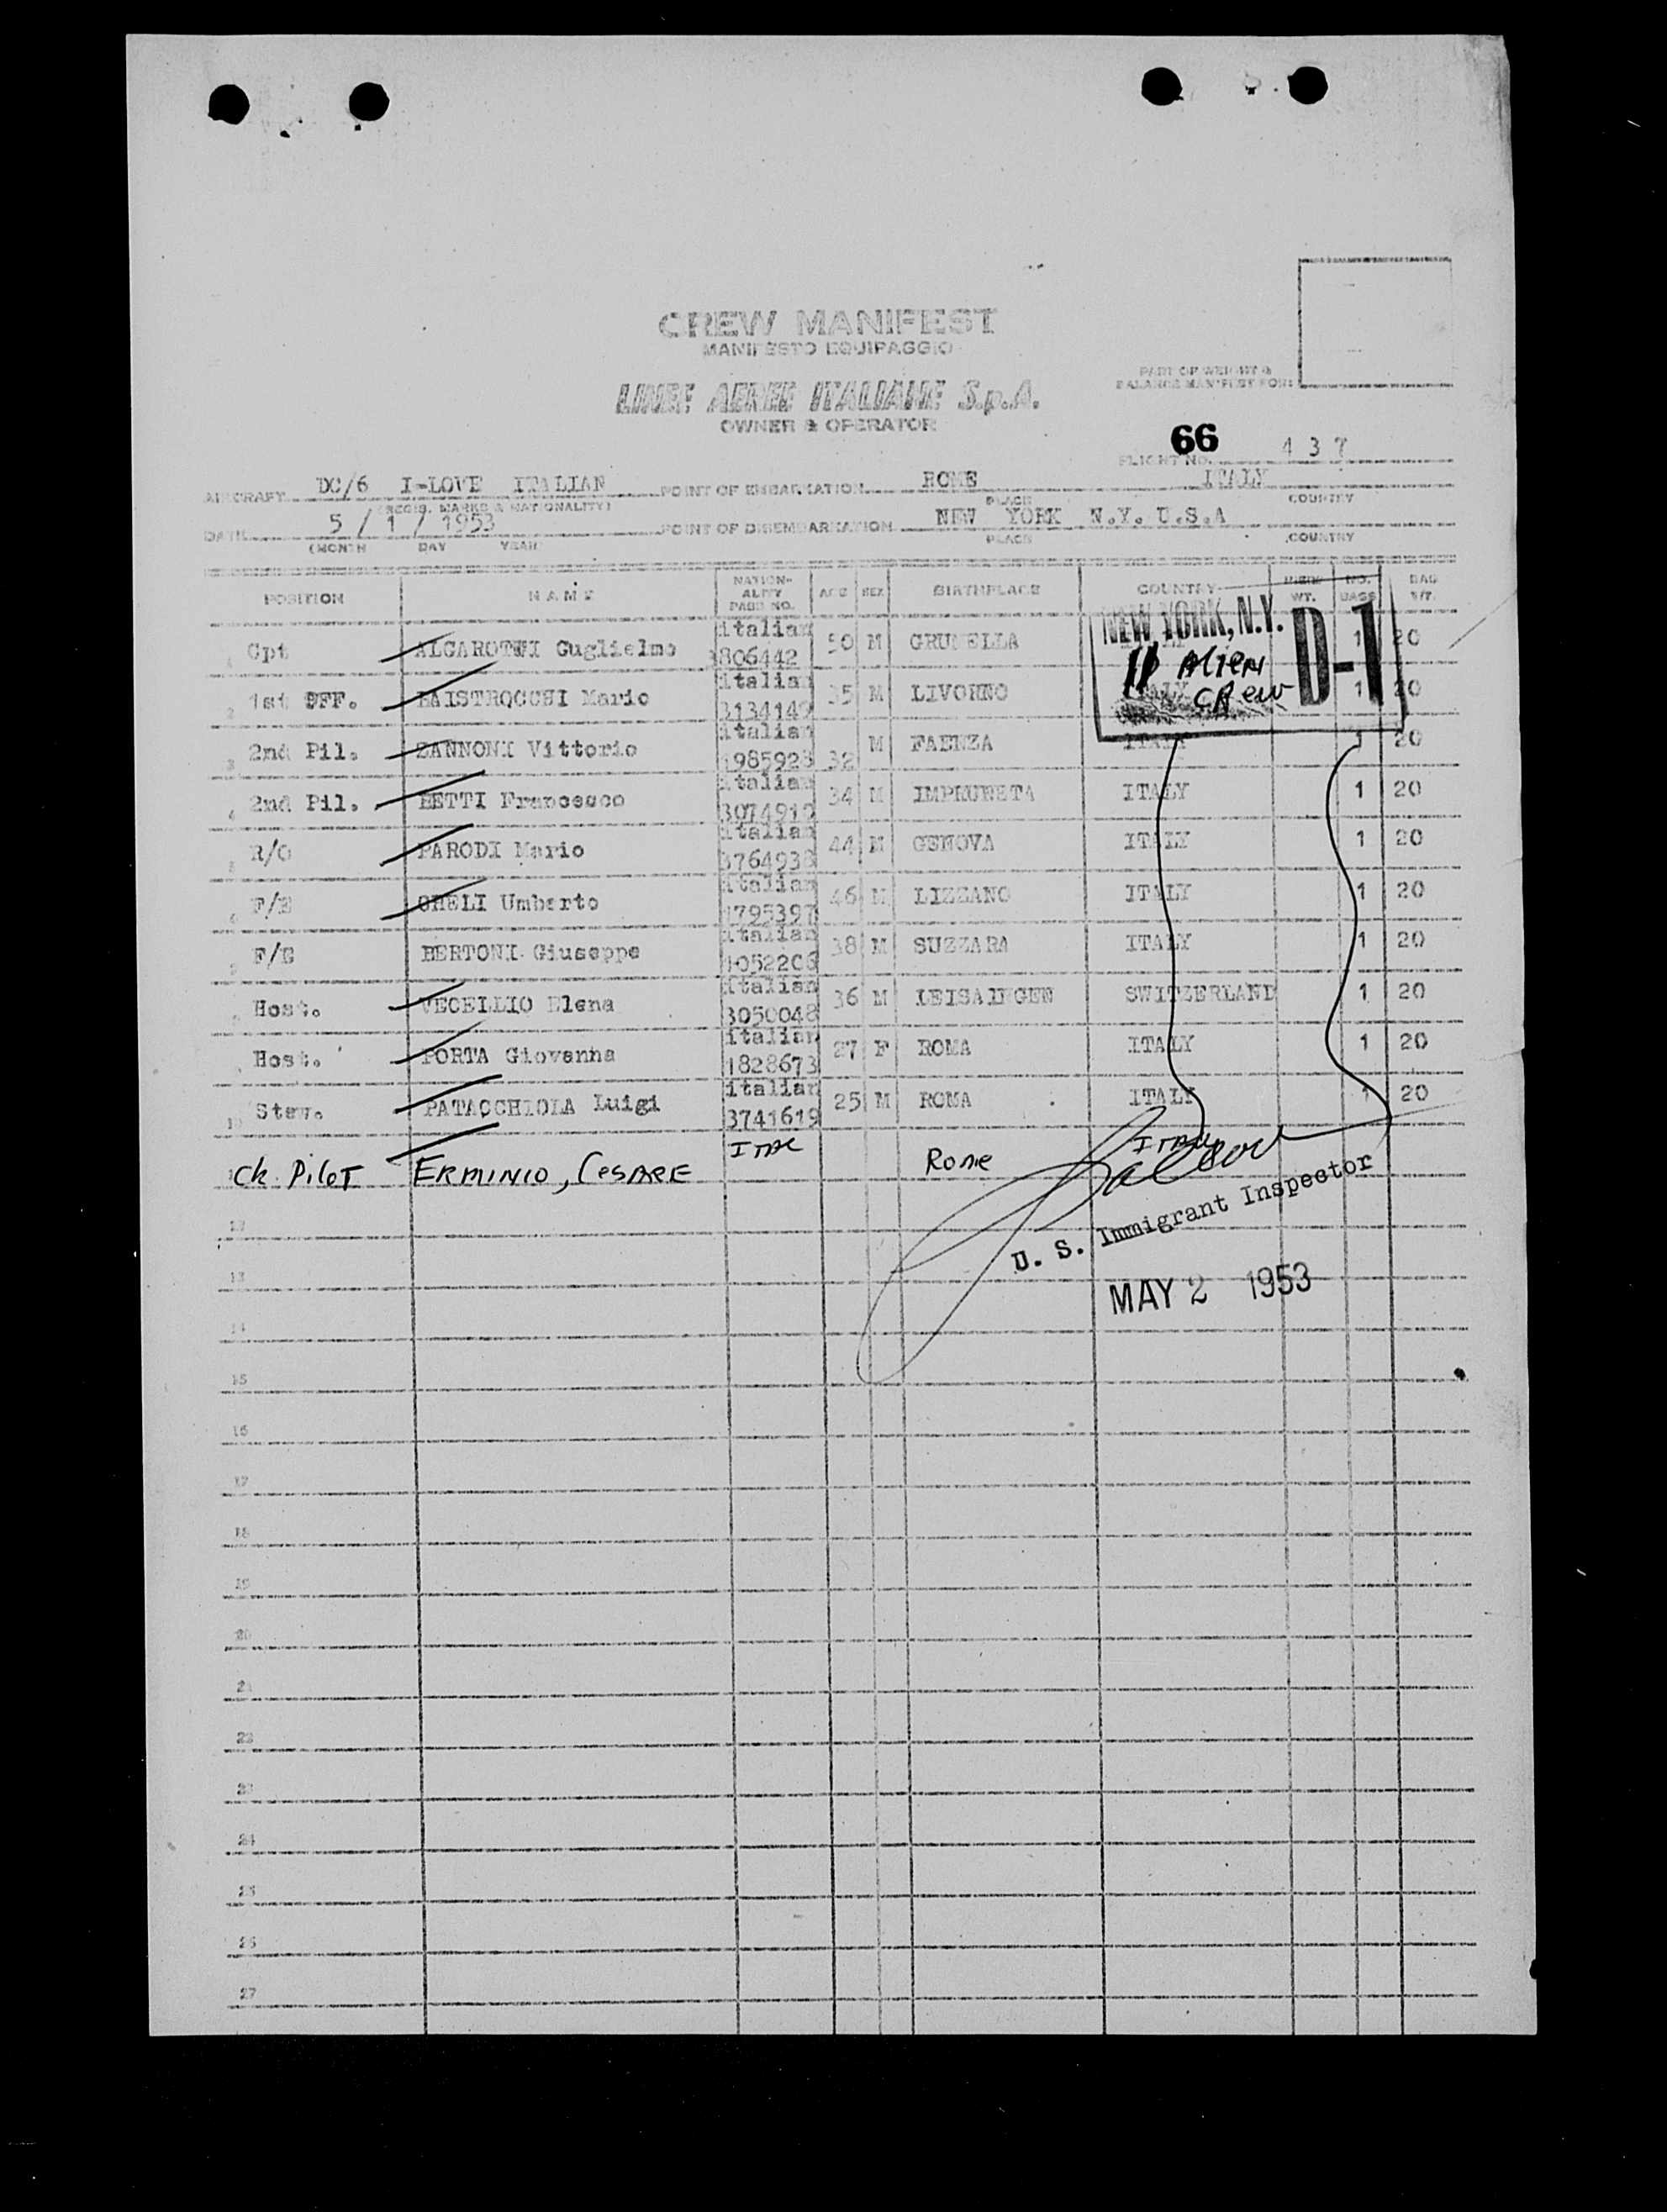 CREW MANIFEST
MANIFESTO EQUIPAGGIO
LINEE AEREE ITALIANE S.p.A.
OWNER & OPERATOR
PART OF WEIGHT &
BALANCE MANIFEST FORM
66
FLIGHT NO. 437
AIRCRAFT DC/6 I-LOVE ITALIAN POINT OF EMBARKATION ROME ITALY
(REGIS. MARKS & NATIONALITY) PLACE COUNTRY
DATE 5 / 1 / 1953 POINT OF DISEMBARKATION NEW YORK N.Y. U.S.A
(MONTH DAY YEAR PLACE COUNTRY
POSITION NAME NATION-ALITY PASS NO. AGE SEX BIRTHPLACE COUNTRY WT. NO. BAGS BAG WT.
NEW YORK, N.Y. D-1
11 Alien
Crew
1 Cpt Guglielmo italian 3806442 50 M 1 20
2 1st OFF. Mario italian 35 M LIVORNO ITALY 1 20
3 2nd Pil. ZANNONI Vittorio italian 32 M FAENZA ITALY 1 20
4 2nd Pil. BETTI Francesco italian 34 M IMPRUNETA ITALY 1 20
5 R/O PARODI Mario italian 3764938 44 M GENOVA ITALY 1 20
6 F/E GHELI Umberto italian 46 M LIZZANO ITALY 1 20
7 F/E BERTONI Giuseppe italian 38 M SUZZARA ITALY 1 20
8 Host. VECELLIO Elena italian 3050048 36 M SWITZERLAND 1 20
9 Host. PORTA Giovanna italian 1828673 27 F ROMA ITALY 1 20
10 Stew. PATACCHIOLA Luigi italian 3741619 25 M ROMA ITALY 1 20
Ck. Pilot ERMINIO, CESARE ITAL Rome ITALY
U. S. Immigrant Inspector
12
13
MAY 2 1953
14
15
16
17
18
19
20
21
22
23
24
25
26
27